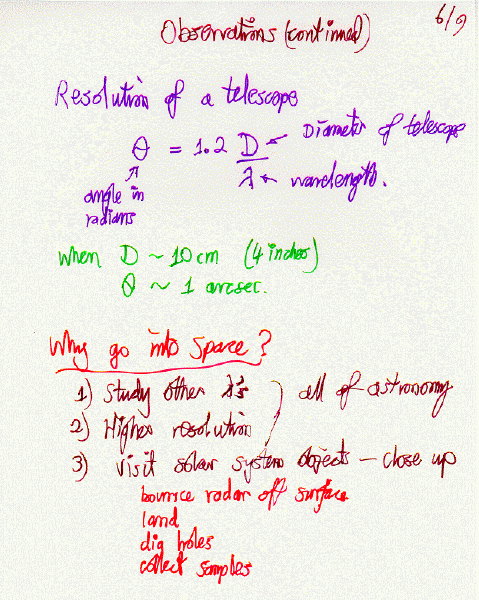 6/9
Observations (continued)
Resolution of a telescope
θ = 1.2 D/λ ← Diameter of telescope
← wavelength.
angle in
radians
when D ~ 10 cm (4 inches)
θ ~ 1 arcsec.
Why go into space?
1) Study other λ's
2) Higher resolution
all of astronomy
3) visit solar system objects – close up
bounce radar off surface
land
dig holes
collect samples